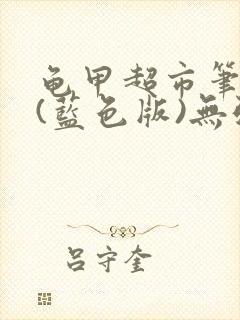 龟甲超市筆
(藍色版)無
吕守奎